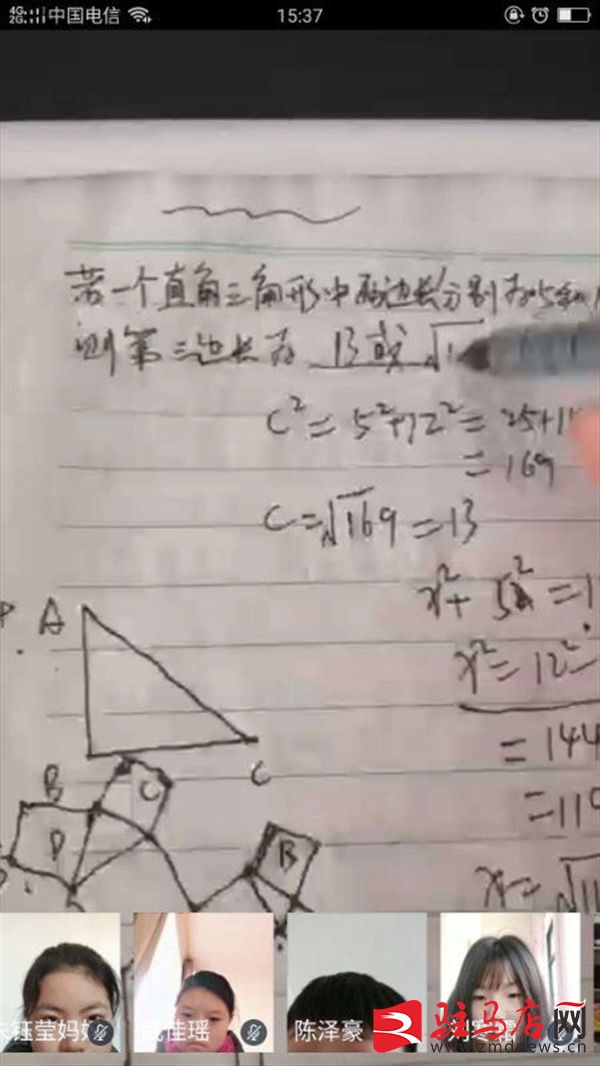 4G 2G 中国电信 15:37
若一个直角三角形中两边长分别为5和
则第三边长为 13或√1
C²=5²+12²=25+1
=169
C=√169=13
x²+5²=1
A
x²=12²-
=144
C
=119
B
C
D
B
x=√11
朱钰莹妈妈 佳瑶 陈泽豪 寒
驻马店网
www.zmdnews.cn